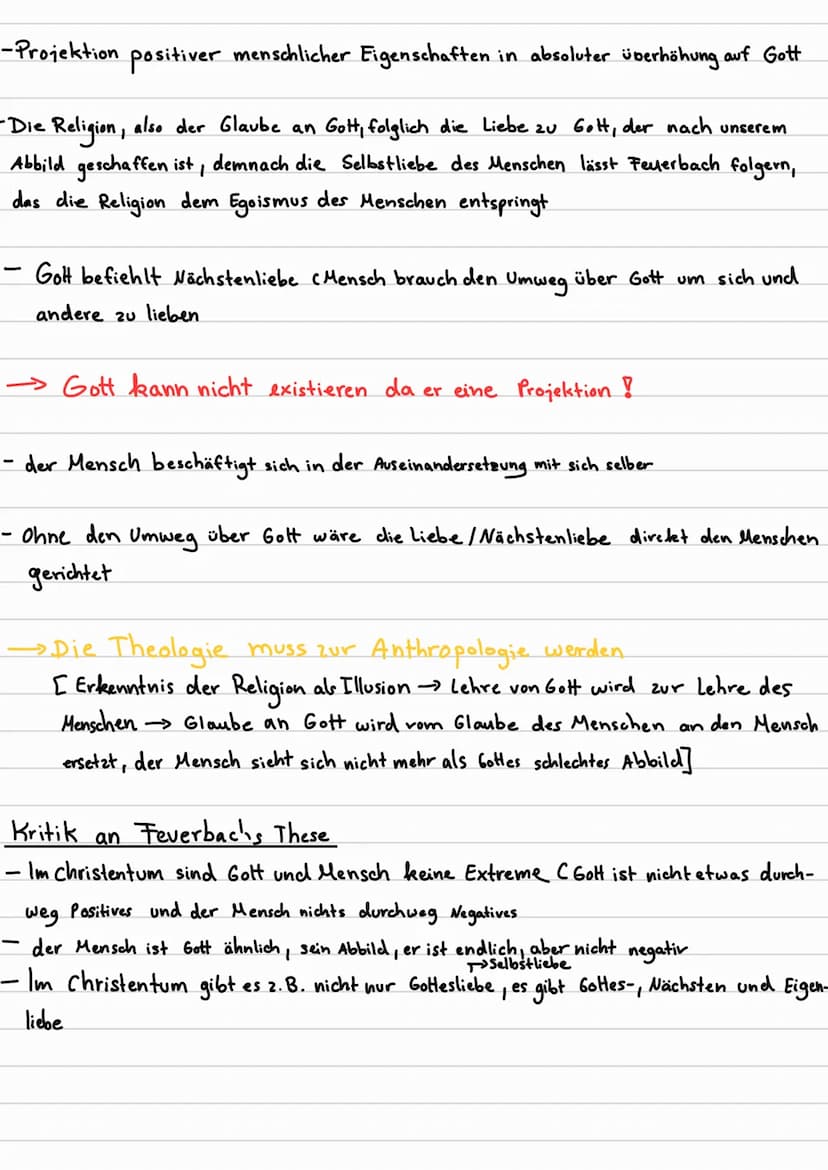 -Projektion positiver menschlicher Eigenschaften in absoluter überhöhung auf Gott
-Die Religion, also der Glaube an Gott, folglich die Liebe zu Gott, der nach unserem
Abbild geschaffen ist, demnach die Selbstliebe des Menschen lässt Feuerbach folgern,
das die Religion dem Egoismus des Menschen entspringt
- Gott befiehlt Nächstenliebe (Mensch brauch den Umweg über Gott um sich und
andere zu lieben
→ Gott kann nicht existieren da er eine Projektion !
- der Mensch beschäftigt sich in der Auseinandersetzung mit sich selber
- Ohne den Umweg über Gott wäre die Liebe/Nächstenliebe direkt den Menschen
gerichtet
→ Die Theologie muss zur Anthropologie werden
[ Erkenntnis der Religion als Illusion → Lehre von Gott wird zur Lehre des
Menschen → Glaube an Gott wird vom Glaube des Menschen an den Mensch
ersetzt, der Mensch sieht sich nicht mehr als Gottes schlechtes Abbild]
Kritik an Feuerbachs These
- Im Christentum sind Gott und Mensch keine Extreme (Gott ist nicht etwas durch-
weg Positives und der Mensch nichts durchweg Negatives
- der Mensch ist Gott ähnlich, sein Abbild, er ist endlich, aber nicht negativ
↱Selbstliebe
- Im Christentum gibt es z.B. nicht nur Gottesliebe, es gibt Gottes-, Nächsten und Eigen-
liebe